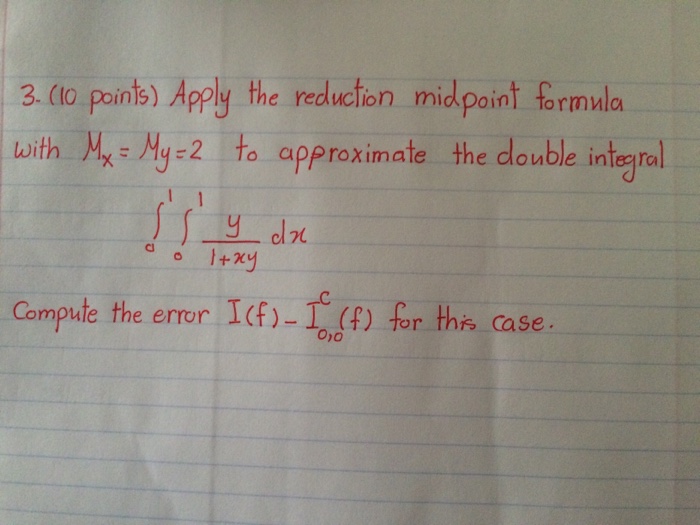 3. (10 points) Apply the reduction midpoint formula
with Mx = My = 2 to approximate the double integral
∫₀¹ ∫₀¹ y/(1+xy) dx
Compute the error I(f) - I^C_{0,0}(f) for this case.